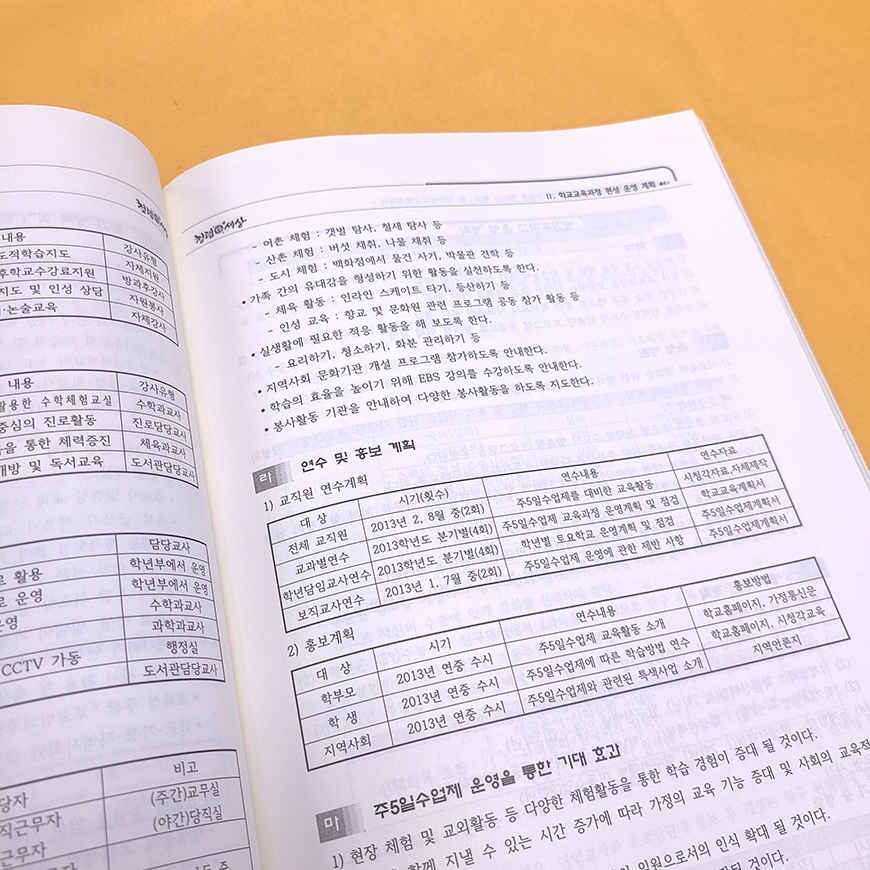 청렴韓세상
내용 강사유형
도적학습지도 자체지원
후학교수강료지원 방과후강사
지도 및 인성 상담 자원봉사
·논술교육 자체강사
내용 강사유형
활용한 수학체험교실 수학과교사
중심의 진로활동 진로담당교사
을 통한 체력증진 체육과교사
개방 및 독서교육 도서관담당교사
담당교사
로 활용 학년부에서 운영
로 운영 학년부에서 운영
운영 수학과교사
과학과교사
CCTV 가동 행정실
도서관담당교사
비고
당자 (주간)교무실
직근무자 (야간)당직실
근무자
II. 학교교육과정 편성 운영 계획
청렴韓세상
- 어촌 체험 : 갯벌 탐사, 철새 탐사 등
- 산촌 체험 : 버섯 채취, 나물 채취 등
- 도시 체험 : 백화점에서 물건 사기, 박물관 견학 등
• 가족 간의 유대감을 형성하기 위한 활동을 실천하도록 한다.
- 체육 활동 : 인라인 스케이트 타기, 등산하기 등
- 인성 교육 : 향교 및 문화원 관련 프로그램 공동 참가 활동 등
• 실생활에 필요한 적응 활동을 해 보도록 한다.
- 요리하기, 청소하기, 화분 관리하기 등
• 지역사회 문화기관 개설 프로그램 참가하도록 안내한다.
• 학습의 효율을 높이기 위해 EBS 강의를 수강하도록 안내한다.
• 봉사활동 기관을 안내하여 다양한 봉사활동을 하도록 지도한다.
라 연수 및 홍보 계획
1) 교직원 연수계획
대 상 시기(횟수) 연수내용 연수자료
전체 교직원 2013년 2. 8월 중(2회) 주5일수업제를 대비한 교육활동 시청각자료.자체제작
교과별연수 2013학년도 분기별(4회) 주5일수업제 교육과정 운영계획 및 점검 학교교육계획서
학년담임교사연수 2013학년도 분기별(4회) 학년별 토요학교 운영계획 및 점검 주5일수업제계획서
보직교사연수 2013년 1, 7월 중(2회) 주5일수업제 운영에 관한 제반 사항 주5일수업제계획서
2) 홍보계획
대 상 시기 연수내용 홍보방법
학부모 2013년 연중 수시 주5일수업제 교육활동 소개 학교홈페이지, 가정통신문
학 생 2013년 연중 수시 주5일수업제에 따른 학습방법 연수 학교홈페이지, 시청각교육
지역사회 2013년 연중 수시 주5일수업제와 관련된 특색사업 소개 지역언론지
마 주5일수업제 운영을 통한 기대 효과
1) 현장 체험 및 교외활동 등 다양한 체험활동을 통한 학습 경험이 증대 될 것이다.
함께 지낼 수 있는 시간 증가에 따라 가정의 교육 기능 증대 및 사회의 교육적
일원으로서의 인식 확대 될 것이다.
될 것이다.